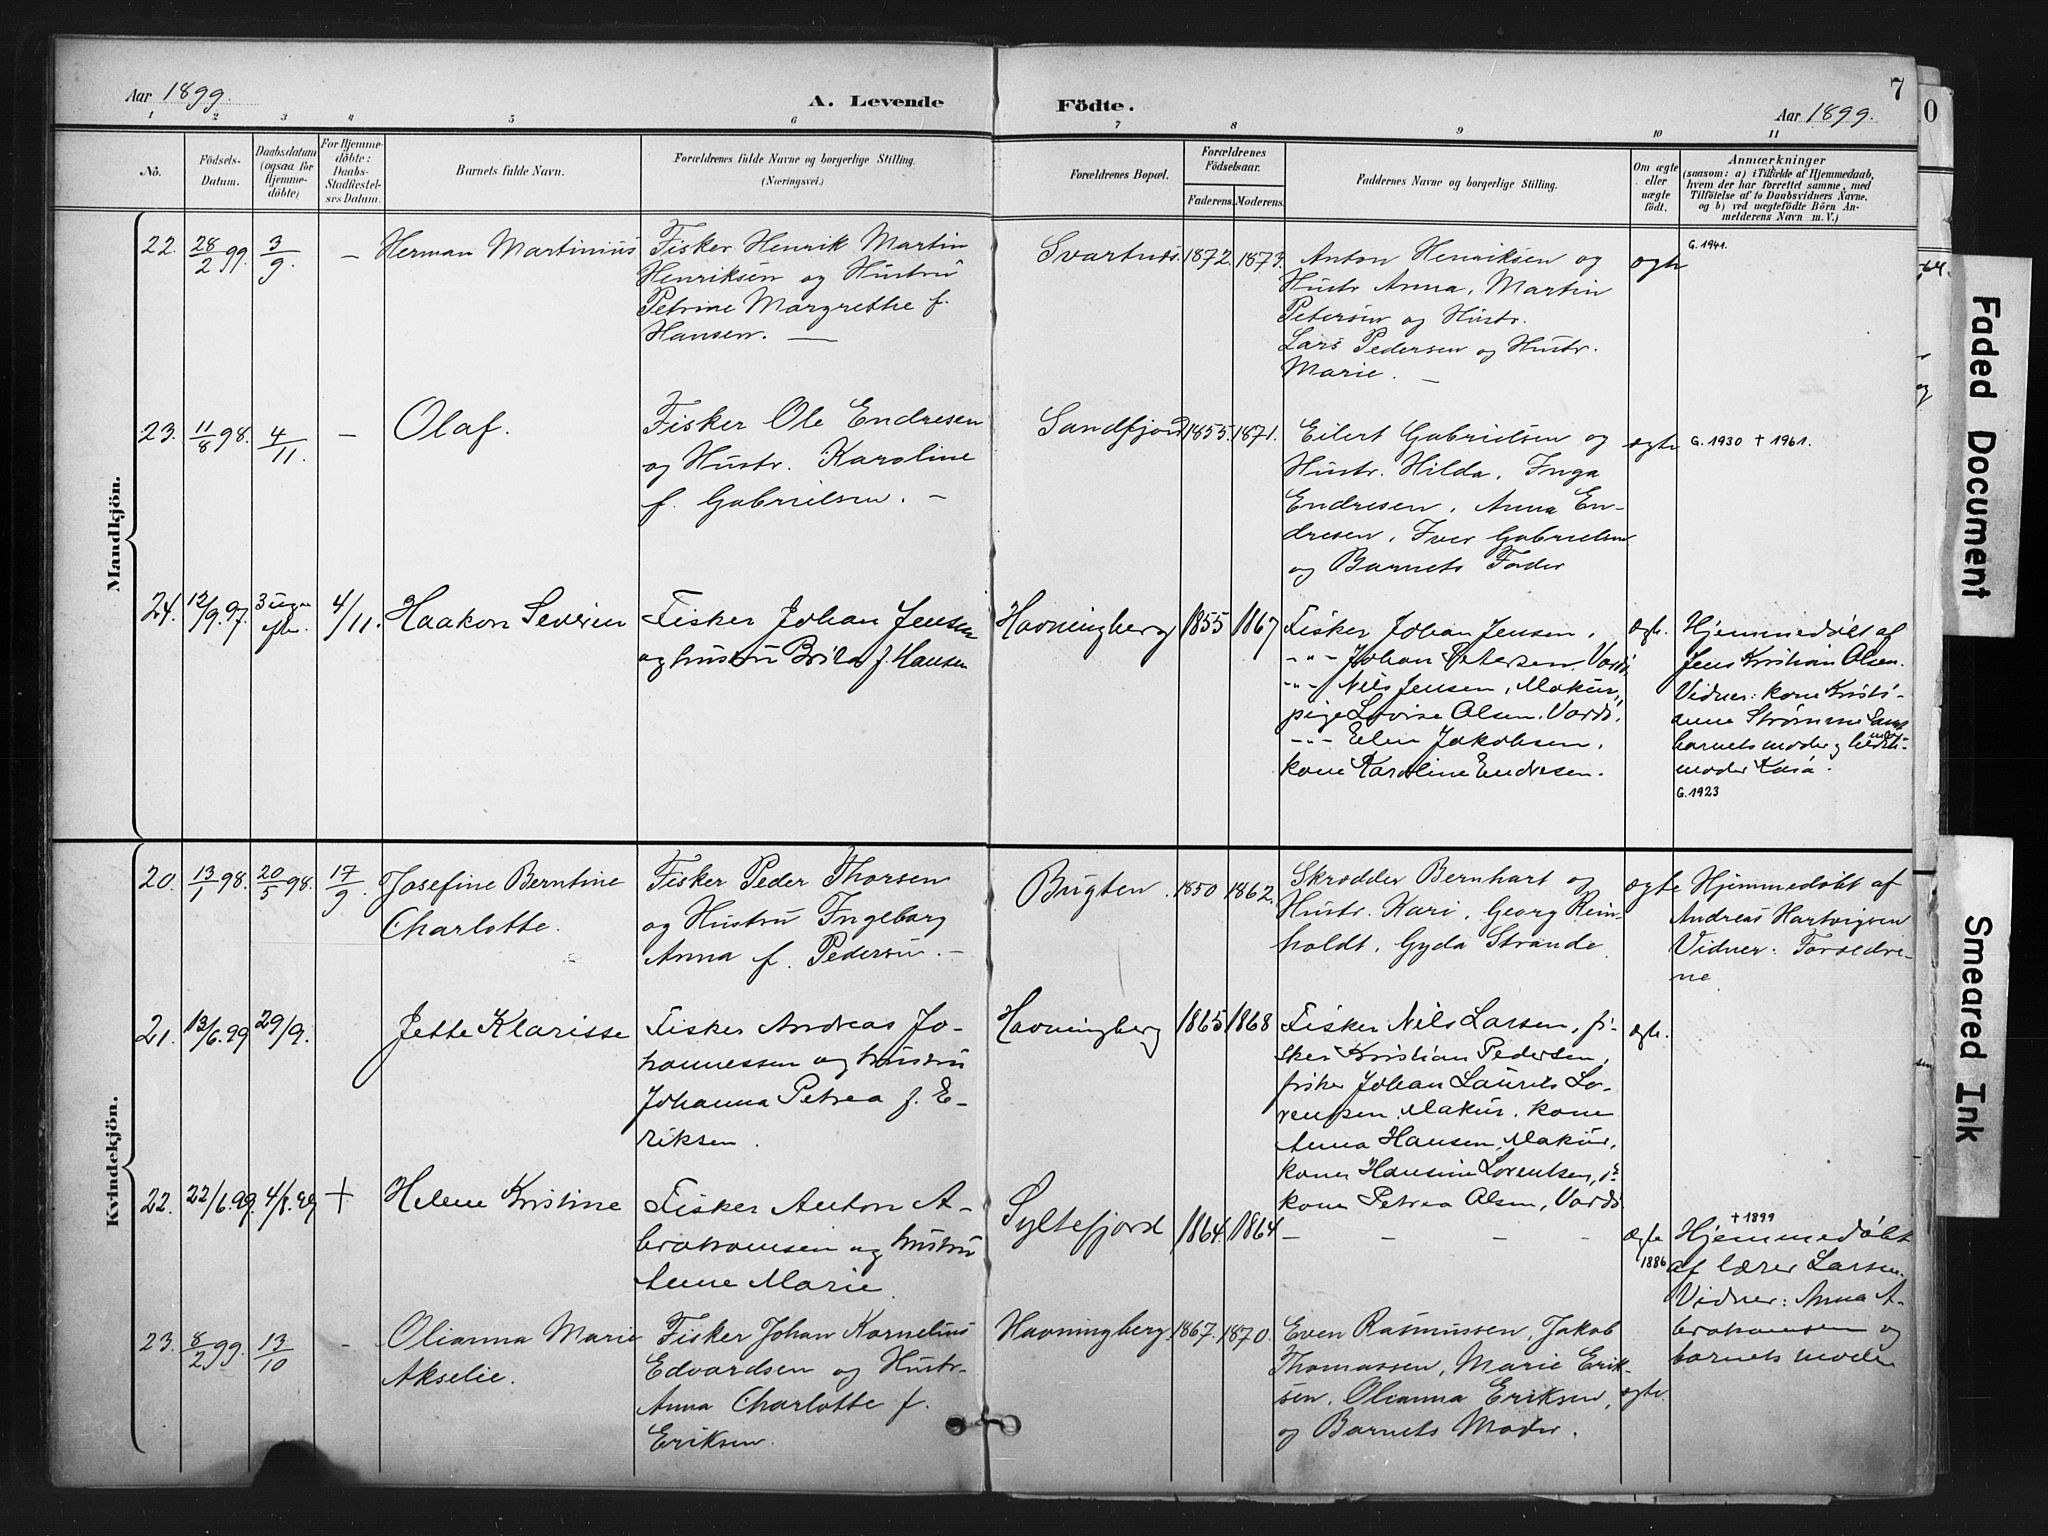 Aar 1899.
A. Levende
Födte.
Aar 1899.
7
1 2 3 4 5 6 7 8 9 10 11
No.
Födsels-
Datum.
Daabsdatum
(ogsaa for
Hjemme-
döbte)
For Hjemme-
döbte:
Daabs-
Stadfæstel-
ses Datum.
Barnets fulde Navn.
Forældrenes fulde Navne og borgerlige Stilling.
(Næringsvei.)
Forældrenes Bopæl.
Forældrenes
Födselsaar.
Faderens.
Moderens.
Faddernes Navne og borgerlige Stilling.
Om ægte
eller
uægte
födt.
Anmærkninger
(saasom: a) i Tilfælde af Hjemmedaab,
hvem der har forrettet samme, med
Tilföielse af to Daabsvidners Navne.
og b) ved uægtefödte Börn An-
melderens Navn m. V.)
Mandkjön.
22.
28/2 99.
3/9.
-
Herman Martinius
Fisker Henrik Martin
Henriksen og Hustru
Petrine Margrethe f.
Hansen. —
Svartnes.
1872.
1873.
Anton Henriksen og
Hustr Anna, Martin
Petersen og Hustr.
Lars Pedersen og Hustr.
Marie. —
ægte
G. 1941.
23.
11/8 98.
4/11.
-
Olaf.
Fisker Ole Endresen
og Hustr. Karoline
f. Gabrielsen. -
Sandfjord
1855.
1871.
Eilert Gabrielsen og
Hustr. Hilda, Inga
Endresen, Anna En-
dresen, Iver Gabrielsen
og Barnets Fader
ægte
G. 1930 † 1961.
24.
12/9.97.
3 uger
4/11.
Haakon Severin
Fisker Johan Jensen
og hustru Brita f. Hansen
Havningberg
1855
1867
Fisker Johan Jensen,
-"- Johan Petersen, Vardö,
-"- Nils Jensen, Makur,
pige Lovise Olsen, Vardö,
-"- Elen Jakobsen,
kone Karoline Endresen.
ægte.
Hjemmedøbt af
Jens Kristian Olsen.
Vidner: kone Kristi-
anne Strømme
barnets moder og
moder Kaisa.
G. 1923
Kvindekjön.
20.
13/1 98.
20/5 98.
17/9.
Josefine Berntine
Charlotte.
Fisker Peder Thorsen
og Hustru Ingeborg
Anna f. Pedersen. -
Bugten.
1850
1862.
Skrædder Bernhart og
Hustr. Kari, Georg Rein-
holdt, Gyda Strande
ægte
Hjemmedøbt af
Andreas Hartvigsen
Vidner: Forældre-
ne
21.
13/6.99
29/9.
Jette Klarisse
Fisker Andreas Jo-
hannessen og hustru
Johanna Petrea f. E-
riksen.
Havningberg
1865
1868
Fisker Nils Larsen, fi-
sker Kristian Pedersen,
fisker Johan Laurits Lo-
rentsen, Makur, kone
Anna Hansen, Makur,
kone Hansine Lorentsen,
kone Petrea Olsen, Vardö.
ægte.
22.
22/6.99.
4/8.99
†
Helene Kristine
Fisker Anton A-
brahamsen og hustru
Anne Marie
Syltefjord
1864.
1864
- - - -
ægte
1886
† 1899
Hjemmedøbt
af lærer Larsen.
Vidner: Anna A-
brahamsen og
barnets moder
23.
8/2 99.
13/10
-
Olianna Marie
Akselie.
Fisker Johan Kornelius
Edvardsen og Hustr.
Anna Charlotte f.
Eriksen.
Havningberg.
1867.
1870.
Even Rasmussen, Jakob
Thomassen, Marie Erik-
sen, Olianna Eriksen,
og Barnets Moder.
ægte.
Faded Document
Smeared Ink